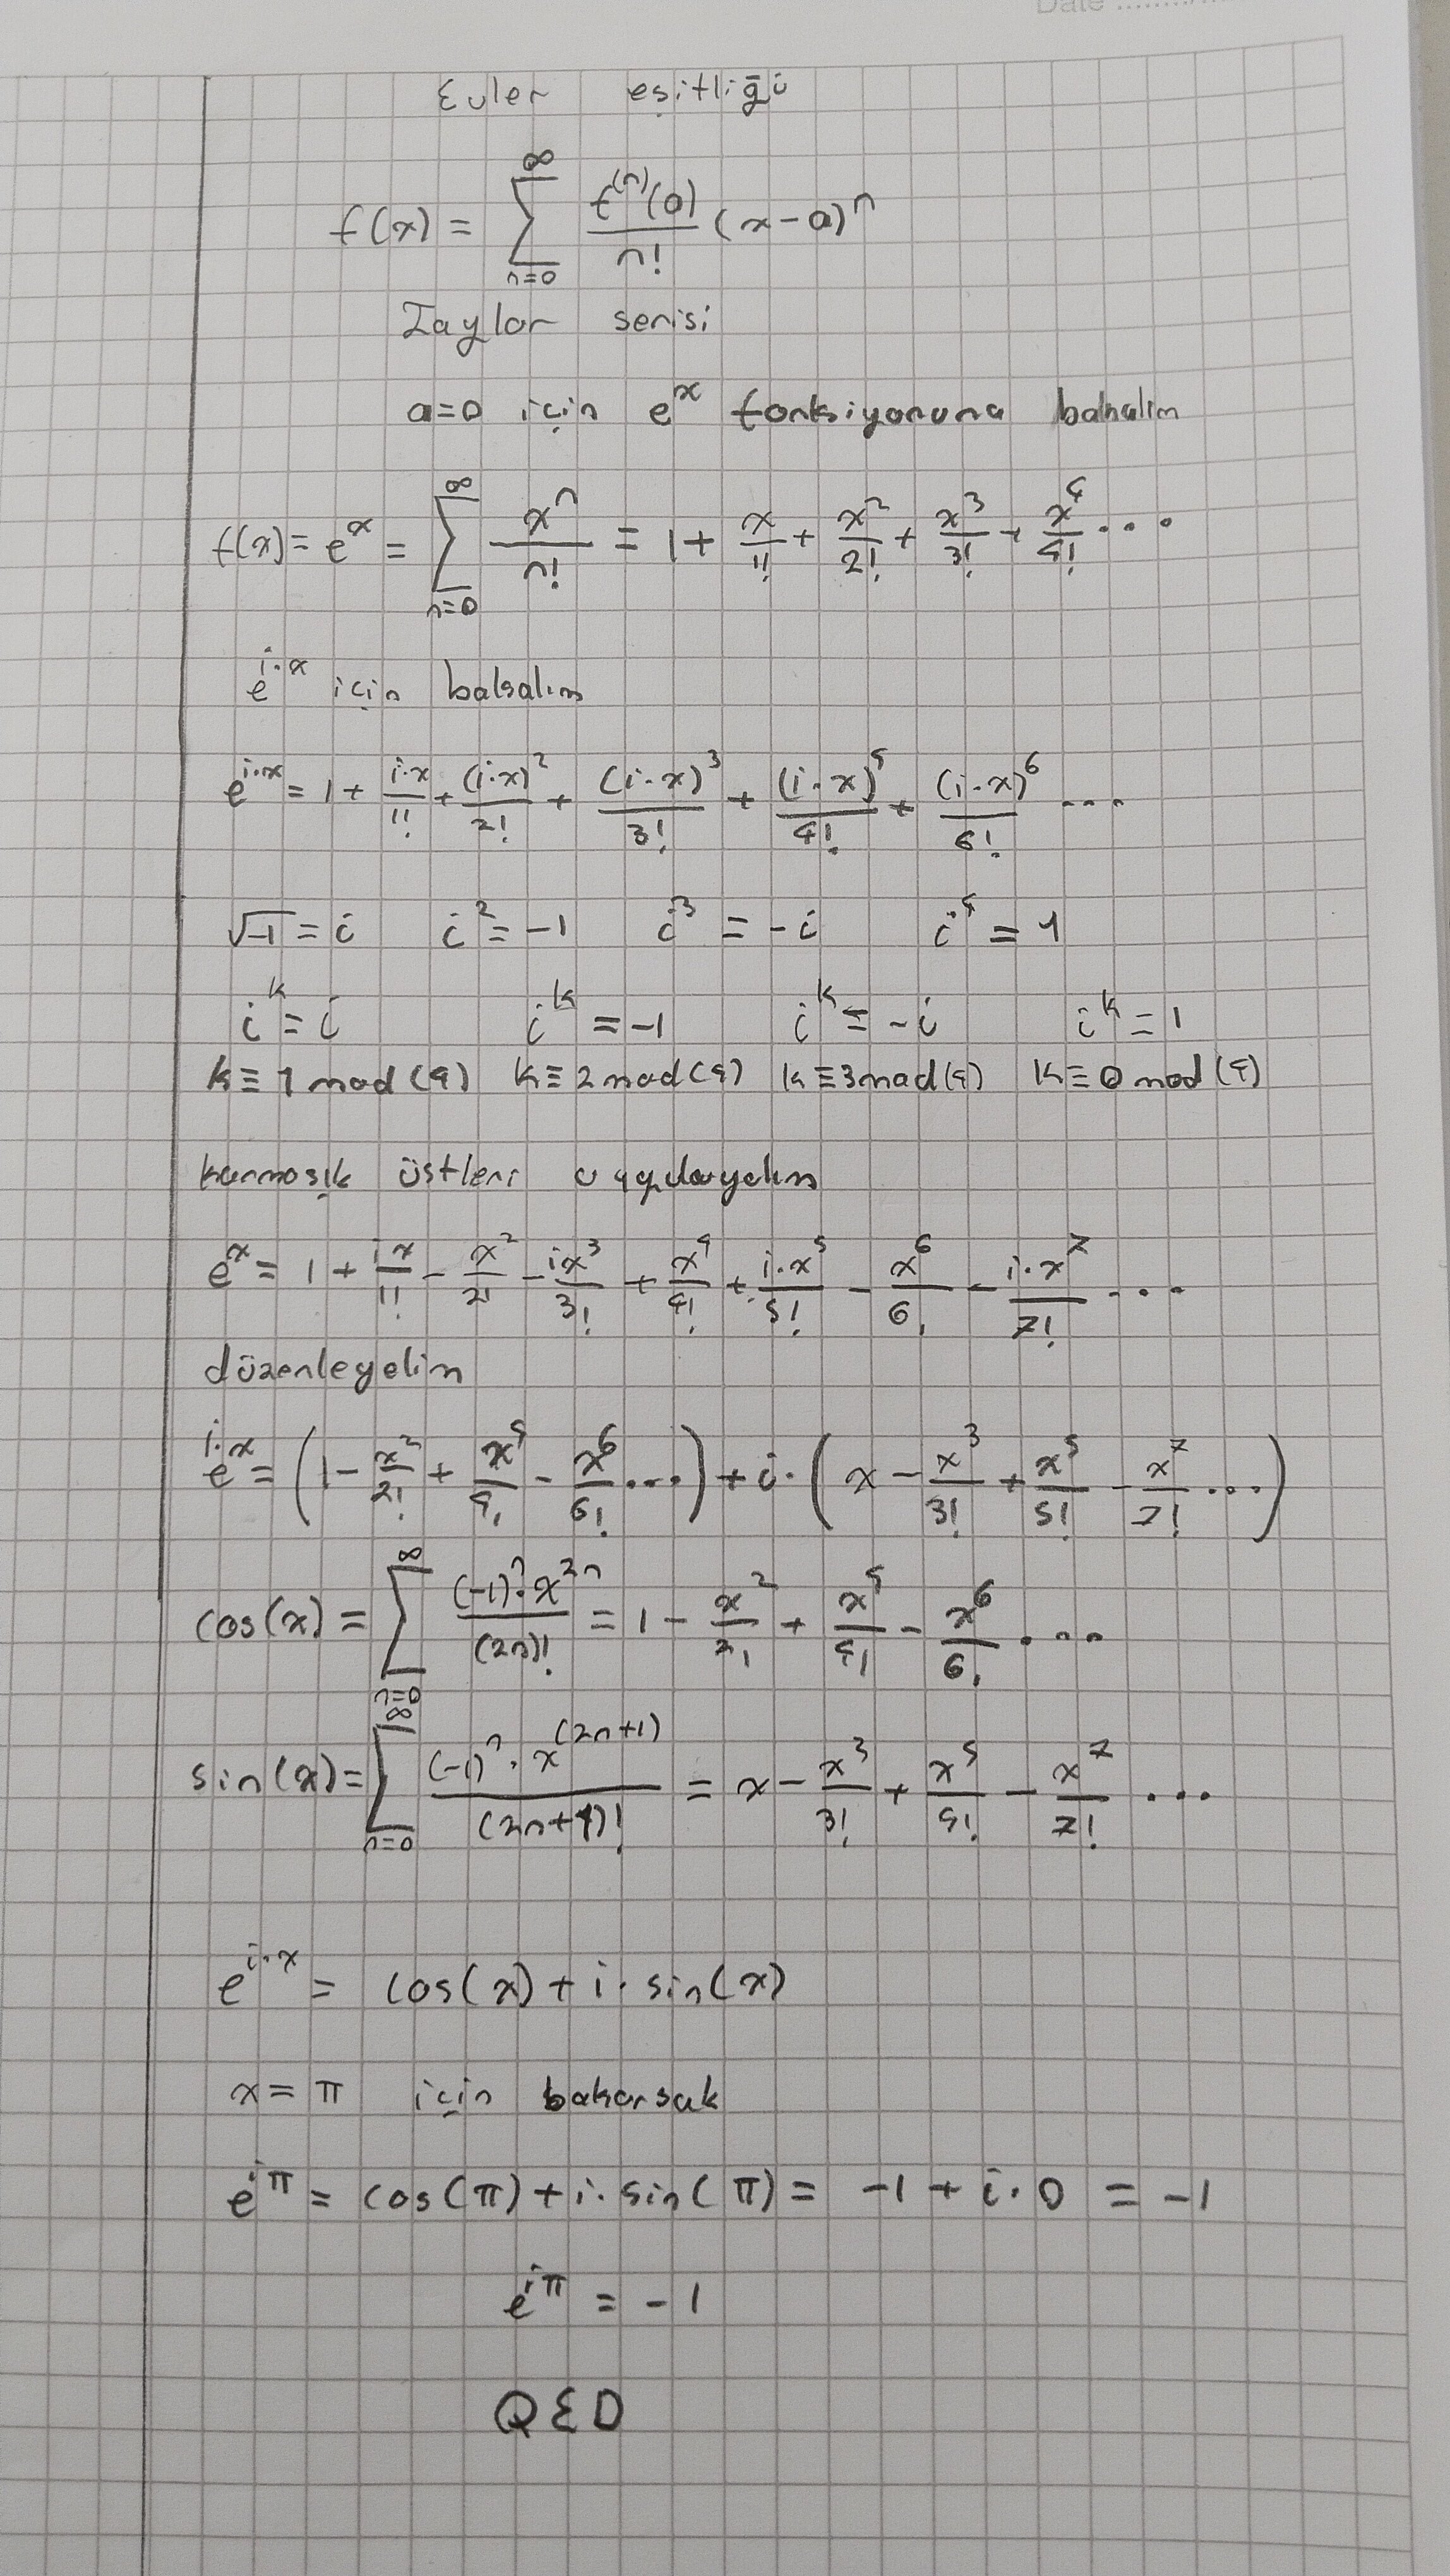 Date ........./......
Euler eşitliği
f(x) = ∑_{n=0}^{∞} f^{(n)}(a)/n! (x-a)^n
Taylor serisi
a=0 için e^x fonksiyonuna bakalım
f(x) = e^x = ∑_{n=0}^{∞} x^n/n! = 1 + x/1! + x^2/2! + x^3/3! + x^4/4! ...
e^{i·x} için bakalım
e^{i·x} = 1 + i·x/1! + (i·x)^2/2! + (i·x)^3/3! + (i·x)^4/4! + (i·x)^6/6! ...
√-1 = i i^2 = -1 i^3 = -i i^4 = 1
i^k = i i^k = -1 i^k = -i i^k = 1
k≡1 mod(4) k≡2 mod(4) k≡3 mod(4) k≡0 mod(4)
karmaşık üstleri uygulayalım
e^x = 1 + ix/1! - x^2/2! - ix^3/3! + x^4/4! + i·x^5/5! - x^6/6! - i·x^7/7! ...
düzenleyelim
e^{i·x} = (1 - x^2/2! + x^4/4! - x^6/6! ...) + i·(x - x^3/3! + x^5/5! - x^7/7! ...)
cos(x) = ∑_{n=0}^{∞} (-1)^n·x^{2n}/(2n)! = 1 - x^2/2! + x^4/4! - x^6/6! ...
sin(x) = ∑_{n=0}^{∞} (-1)^n·x^{(2n+1)}/(2n+1)! = x - x^3/3! + x^5/5! - x^7/7! ...
e^{i·x} = cos(x) + i·sin(x)
x = π için bakarsak
e^{iπ} = cos(π) + i·sin(π) = -1 + i·0 = -1
e^{iπ} = -1
QED